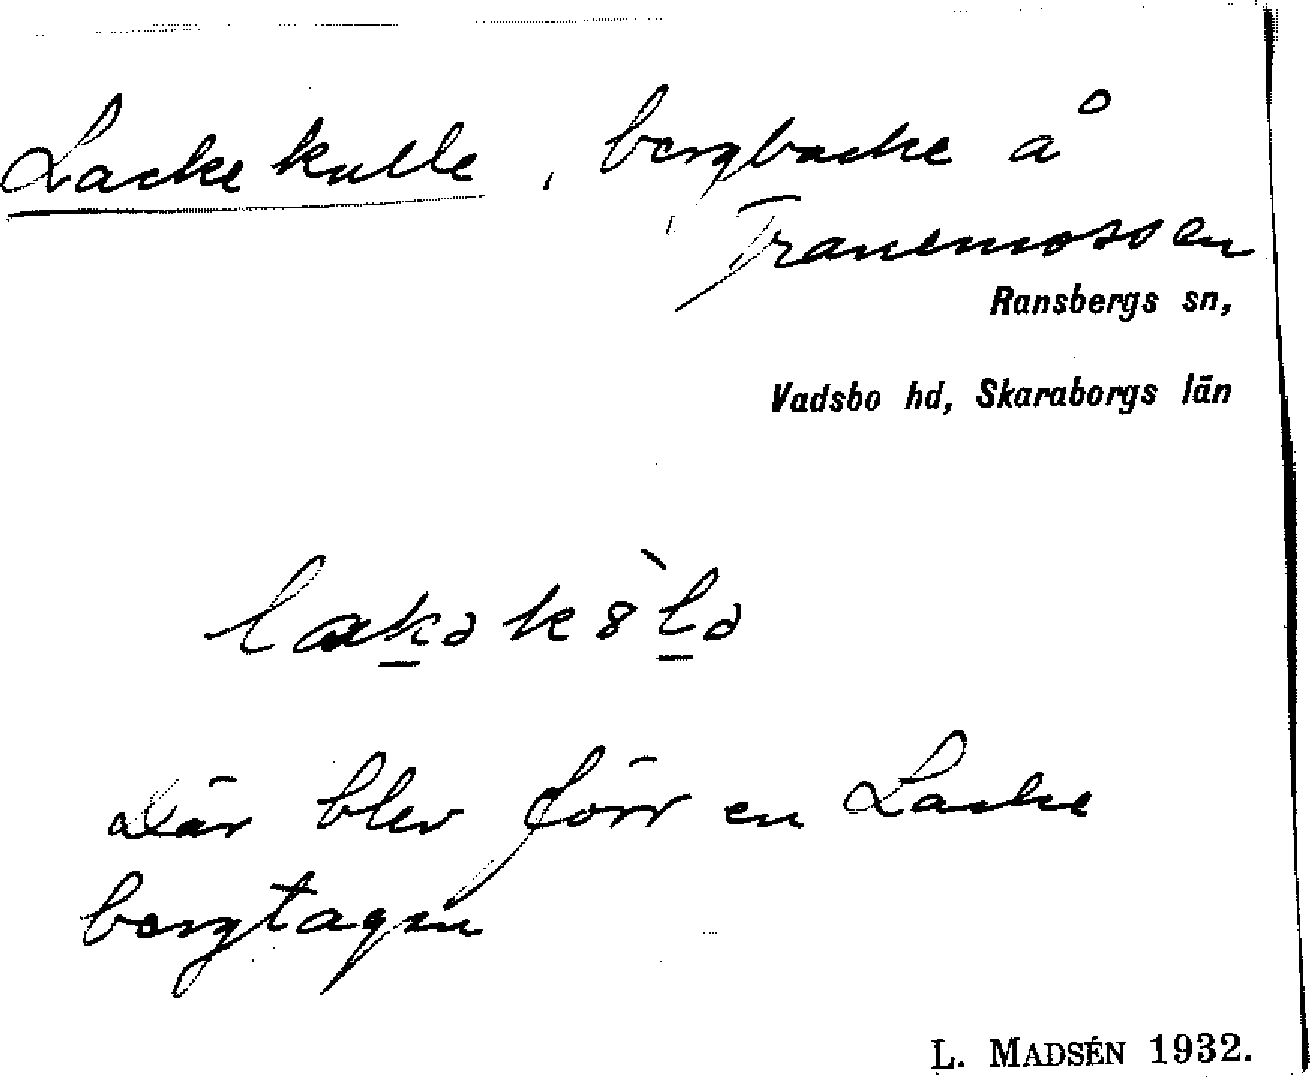 Lackekulle, bergbacke å
Tranemossen
Ransbergs sn,
Vadsbo hd, Skaraborgs län
Där blev förr en Lacke
bergtagen
L. MADSÉN 1932.